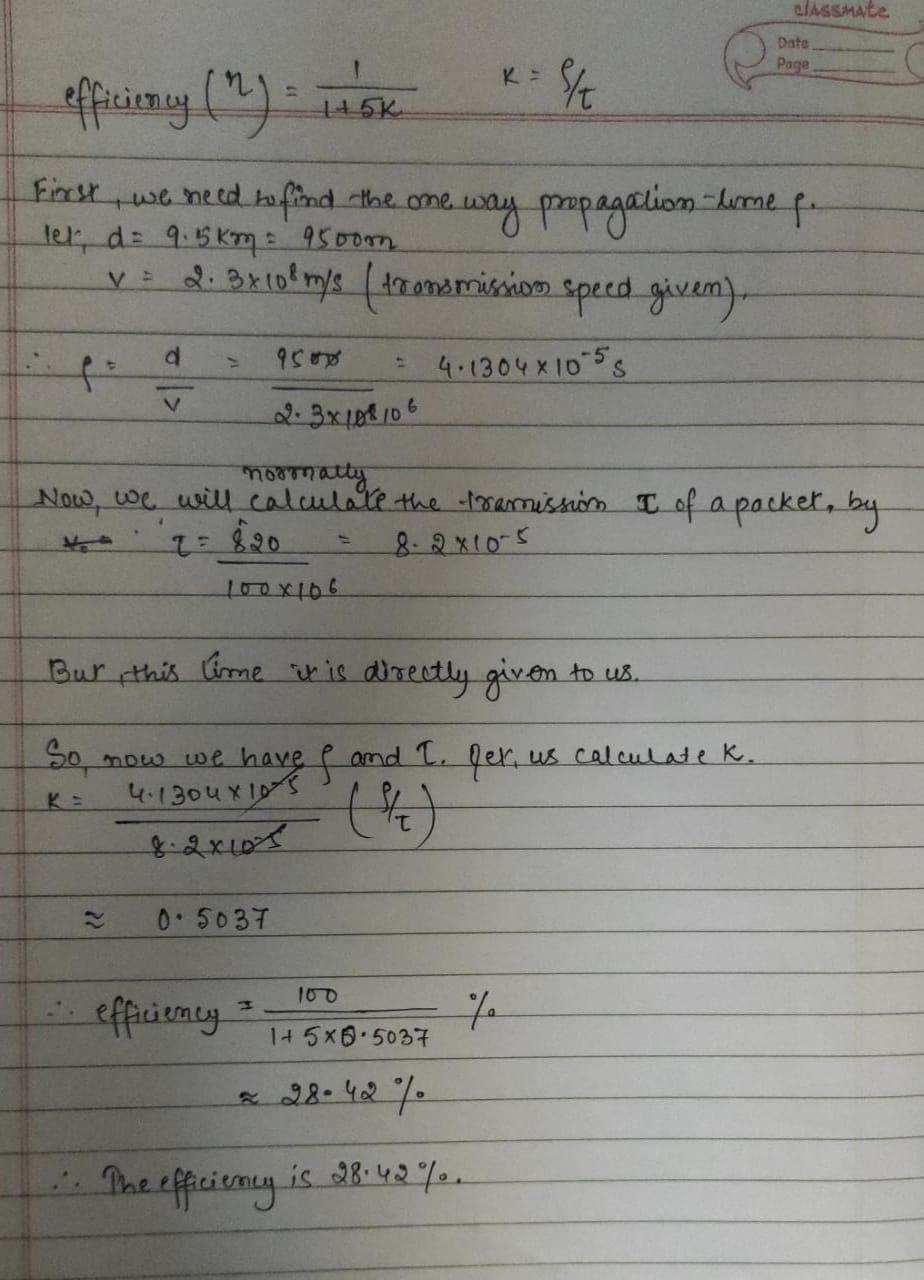 classmate
Date
Page
efficiency (η) = 1/1+5K    K = ρ/τ
First, we need to find the one way propagation time ρ.
let, d = 9.5Km = 9500m
v = 2.3×10⁸ m/s (transmission speed given).
∴ ρ = d/v = 9500/2.3×10⁸ 10⁶ = 4.1304×10⁻⁵ s
normally
Now, we will calculate the tramission τ of a packet, by
τ = 820/100×10⁶ = 8.2×10⁻⁵
But, this time it is directly given to us.
So, now we have ρ and τ. Let, us calculate K.
K = 4.1304×10⁻⁵/8.2×10⁻⁵ (ρ/τ)
≈ 0.5037
∴ efficiency = 100/1+5×0.5037 %
≈ 28.42 %
∴ The efficiency is 28.42%.